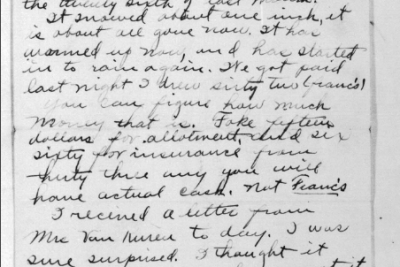 the twenty sixth of last month.
It snowed about one inch, it
is about all gone now. It has
warmed up now, and has started
in to rain again. We got paid
last night I drew sixty two (francs)
you can figure how much
money that is. Take fifteen
dollars for allotment, and six
sixty for insurance from
thirty three any you will
have actual cash. not Francs
I received a letter from
Mrs Van to day. I was
sure surprised. I thought it